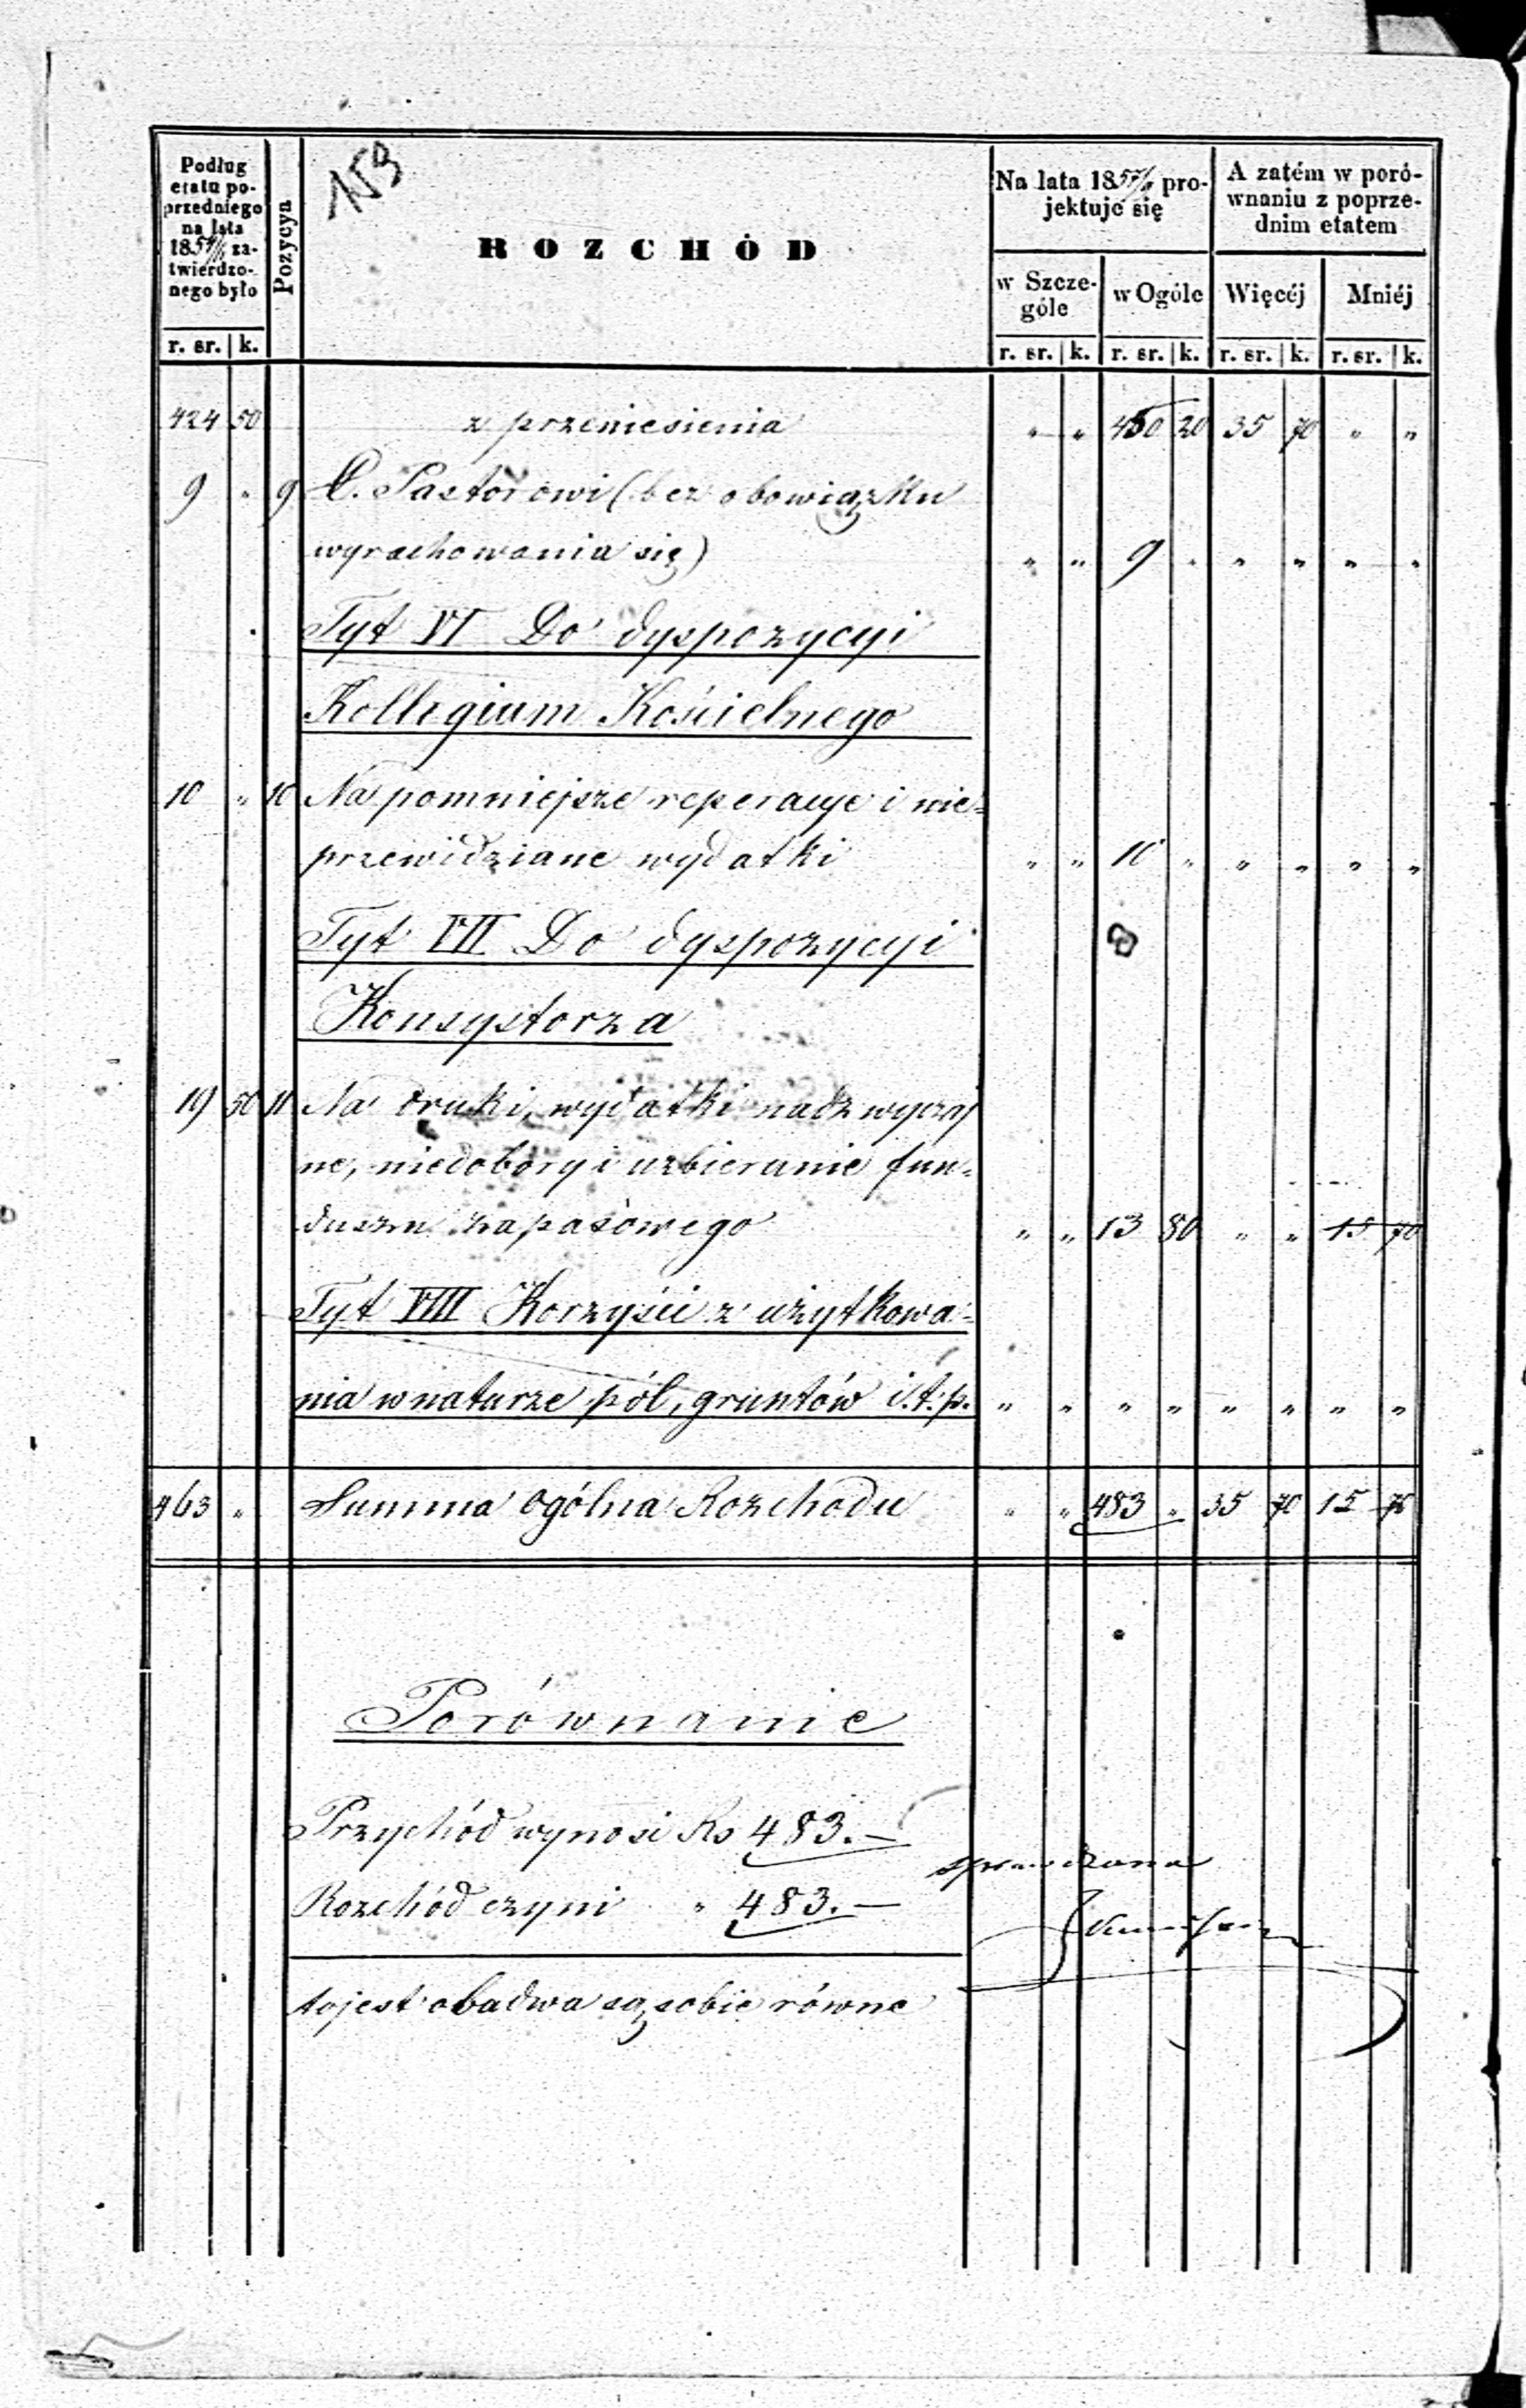 153
Podług etatu po-
przedniego
na lata
18 za-
twierdzo-
nego było
Pozycya
ROZCHÓD
Na lata 18 pro-
jektuje się
A zatém w poró-
wnaniu z poprze-
dnim etatem
w Szcze-
góle
w Ogóle
Więcéj
Mniéj
r. sr. k. r. sr. k. r. sr. k. r. sr. k. r. sr. k.
424 50 z przeniesienia " " 450 20 35 70 " "
9 " 9 C. Pastorowi (bez obowiązku
wyrachowania się) " " 9 " " " " "
Tyt VI Do dyspozycyi
Kollegium Kościelnego
10 " 10 Na pomniejsze reperacye i nie=
przewidziane wydatki " " 10 " " " " "
Tyt VII Do dyspozycyi
Konsystorza
19 50 11 Na druki, wydatki nadzwyczaj
ne, niedobory i uzbieranie fun=
duszu zapasowego " " 13 80 " " 15 70
Tyt VIII Korzyści z użytkowa=
nia w naturze pól, gruntów i.t.p. " " " " " " " "
463 " Summa ogólna Rozchodu " " 483 " 35 70 15 70
Porównanie
Przychód wynosi Rs 483. —
Sprawdzono
Rozchód czyni " 483. —
to jest obadwa są sobie równe